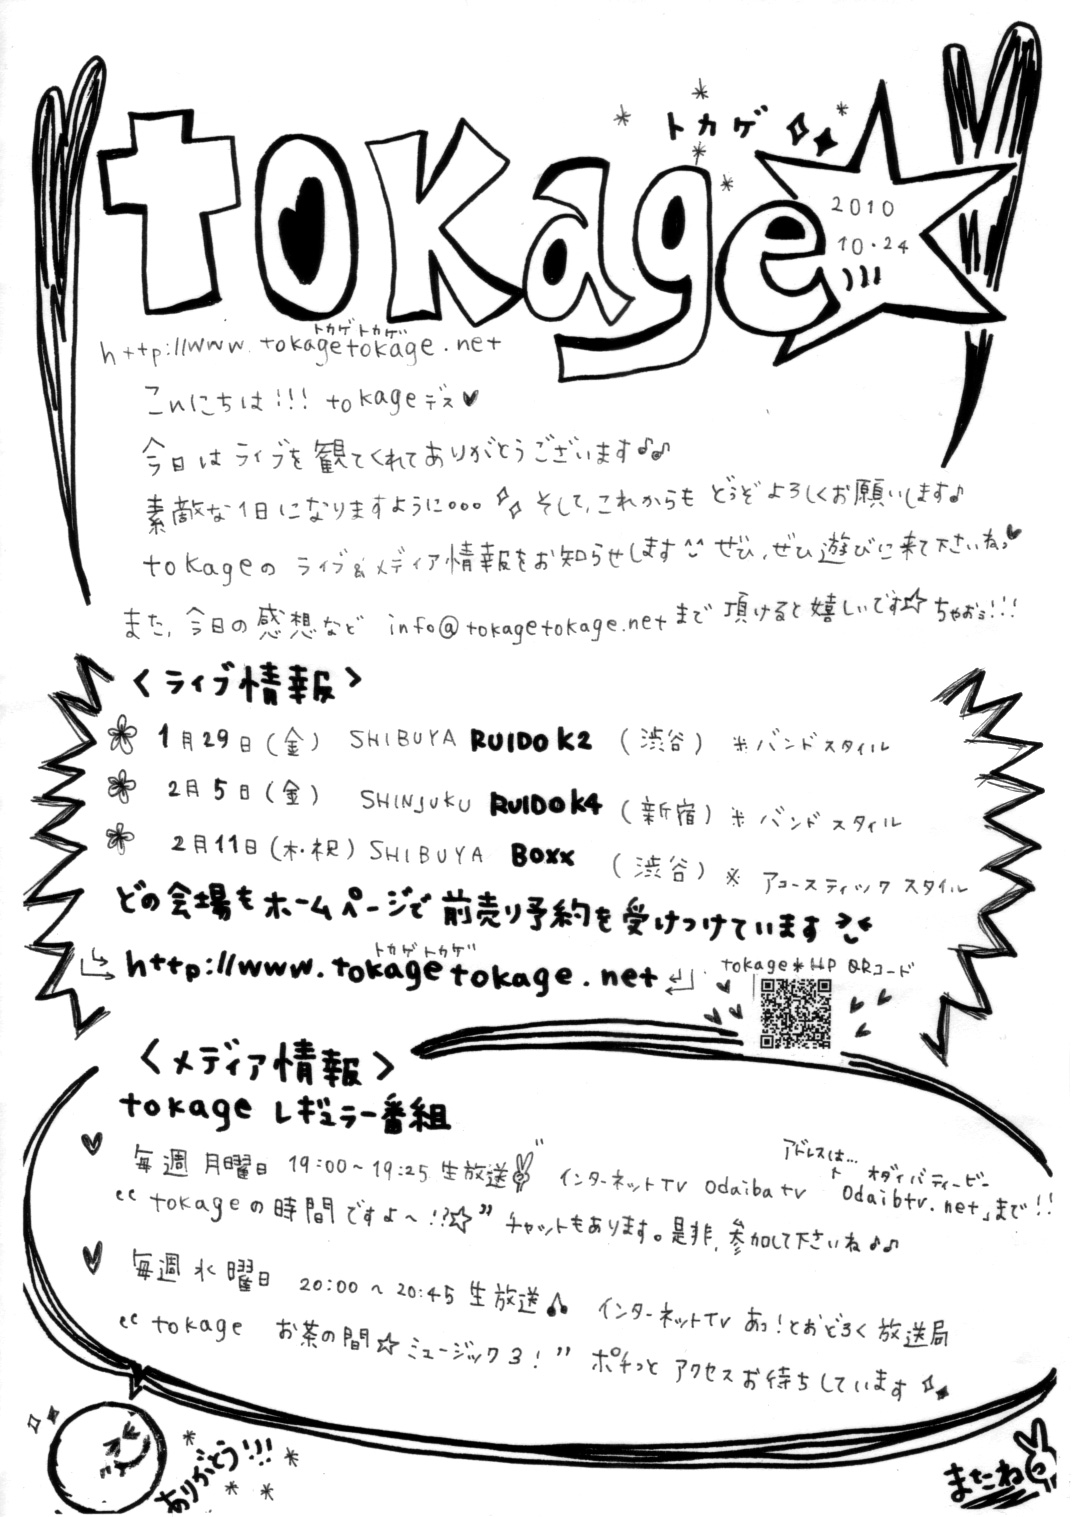 トカゲ
tokage
2010
10・24
トカゲトカゲ
http://www.tokagetokage.net
こんにちは!!! tokageデス♥
今日はライブを観てくれてありがとうございます♪♪
素敵な1日になりますように。。。そして、これからもどうぞよろしくお願いします♪
tokageのライブ&メディア情報をお知らせします^^ぜひ、ぜひ遊びに来て下さいねっ♥
また、今日の感想など info@tokagetokage.netまで頂けると嬉しいです☆ちゃお!!!
<ライブ情報>
1月29日(金) SHIBUYA RUIDO K2 (渋谷) ※バンドスタイル
2月5日(金) SHINJUKU RUIDO K4 (新宿) ※バンドスタイル
2月11日(木・祝) SHIBUYA BOXX (渋谷) ※アコースティックスタイル
どの会場もホームページで前売り予約を受けつけています
トカゲトカゲ
http://www.tokagetokage.net
tokage*HP QRコード
<メディア情報>
tokage レギュラー番組
♥
毎週月曜日 19:00~19:25 生放送 インターネットTV Odaiba tv
アドレスは…
オダイバティービー
「Odaibtv.net」まで!!
“tokageの時間ですよ~!?☆” チャットもあります。是非、参加して下さいね♪♪
♥
毎週水曜日 20:00~20:45 生放送♪ インターネットTV あっ!とおどろく放送局
“tokage お茶の間☆ミュージック3!” ポチっとアクセスお待ちしています
ありがとう!!!
またね